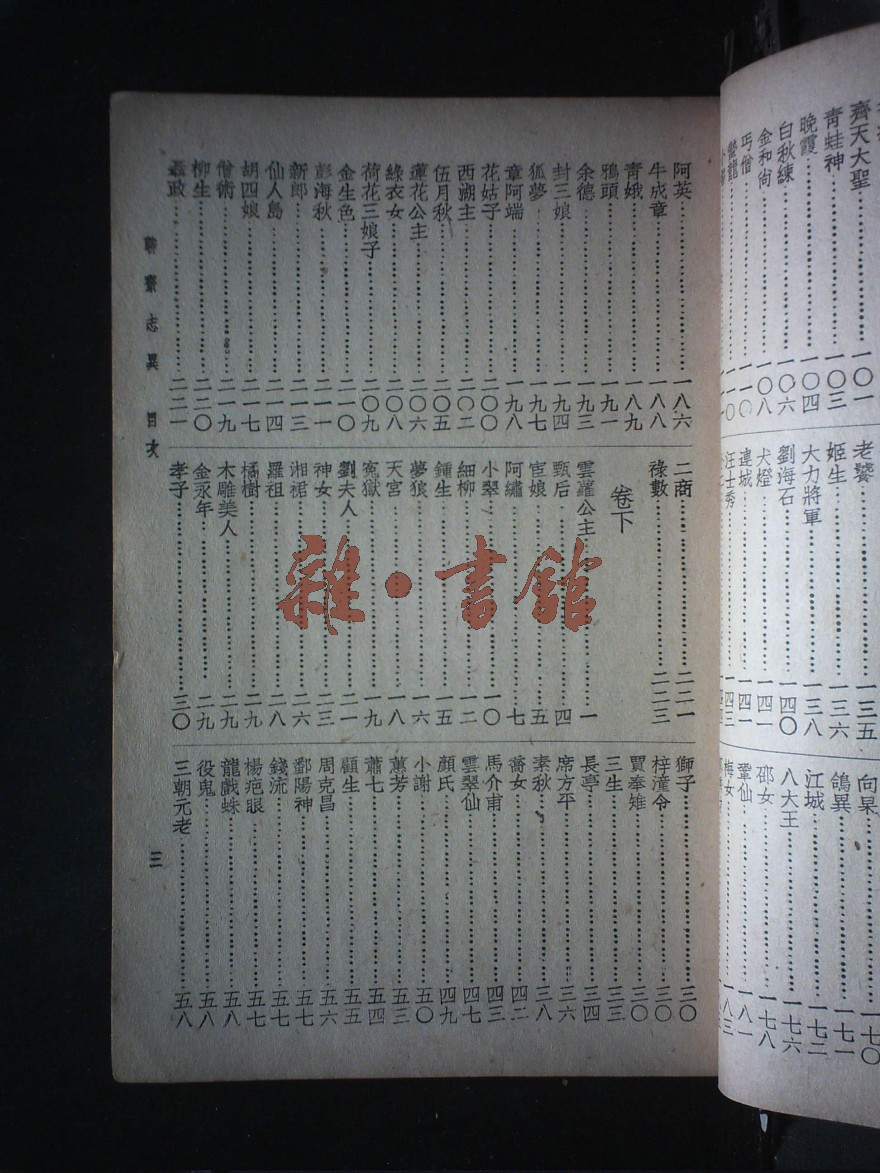 齊天大聖……一〇一
青蛙神……一〇三
晚霞……一〇四
白秋練……一〇六
金和尚……一〇八
丐僧
蟄龍
老饕……一三五
姬生……一三六
大力將軍……一三八
劉海石……一四〇
犬燈……一四一
連城……一四一
汪士秀……一四三
向杲……一七〇
鴿異……一七一
江城……一七二
八大王……一七六
邵女……一七八
鞏仙……一八一
梅女……一八三
阿英……一八六
牛成章……一八八
青娥……一八九
鴉頭……一九一
余德……一九三
封三娘……一九四
狐夢……一九七
章阿端……一九八
花姑子……二〇〇
西湖主……二〇二
伍月秋……二〇五
蓮花公主……二〇六
綠衣女……二〇八
荷花三娘子……二〇九
金生色……二一〇
彭海秋……二一一
新郎……二一三
仙人島……二一四
胡四娘……二一七
僧術……二一九
柳生……二二〇
聶政……二二一
二商……二二一
祿數……二二三
卷下
雲蘿公主……一
甄后……四
宦娘……五
阿繡……七
小翠……一〇
細柳……一二
鍾生……一五
夢狼……一六
天宮……一八
冤獄……一九
劉夫人……二一
神女……二三
湘裙……二六
羅祖……二八
橘樹……二九
木雕美人……二九
金永年……二九
孝子……三〇
獅子……三〇
梓潼令……三〇
賈奉雉……三〇
三生……
長亭……三四
席方平……三六
素秋……三八
喬女……四二
馬介甫……四三
雲翠仙……
顏氏……四九
小謝……五〇
蕙芳……五三
蕭七……五四
顧生……五五
周克昌……五六
鄱陽神……五七
錢流……五七
楊疤眼……五七
龍戲蛛……五八
役鬼……五八
三朝元老……五八
聊齋志異 目次
三
雜·書館